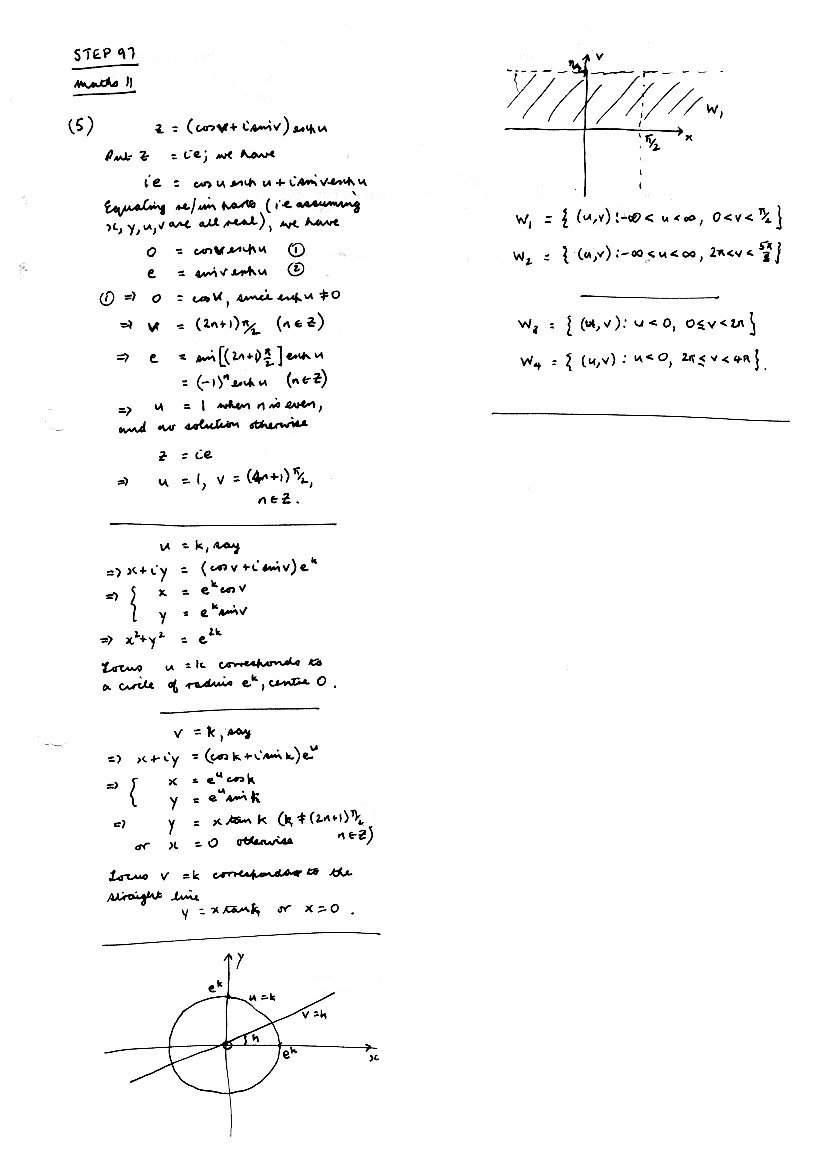 STEP 97
Maths II
(5) z = (cos v + i sin v) exp u
Put z = ie; we have
ie = cos v exp u + i sin v exp u
Equating re/im parts (ie assuming
x, y, u, v are all real), we have
0 = cos v exp u ①
e = sin v exp u ②
① ⇒ 0 = cos v, since exp u ≠ 0
⇒ v = (2n+1)π/2 (n ∈ Z)
⇒ e = sin[(2n+1)π/2] exp u
= (-1)^n exp u (n ∈ Z)
⇒ u = 1 when n is even,
and no solution otherwise
z = ie
⇒ u = 1, v = (4n+1)π/2,
n ∈ Z.
u = k, say
⇒ x+iy = (cos v + i sin v) e^k
⇒ { x = e^k cos v
y = e^k sin v
⇒ x²+y² = e^2k
Locus u = k corresponds to
a circle of radius e^k, centre 0.
v = k, say
⇒ x+iy = (cos k + i sin k) e^u
⇒ { x = e^u cos k
y = e^u sin k
⇒ y = x tan k (k ≠ (2n+1)π/2
or x = 0 otherwise n ∈ Z)
Locus v = k corresponds to the
straight line
y = x tan k or x = 0.
y
e^k
u = k
v = h
h
e^k
x
v
π/2
W₁
π/2
x
W₁ = { (u,v) : -∞ < u < ∞, 0 < v < π/2 }
W₂ = { (u,v) : -∞ < u < ∞, 2π < v < 5π/2 }
W₃ = { (u,v) : u < 0, 0 ≤ v < 2π }
W₄ = { (u,v) : u < 0, 2π ≤ v < 4π }.